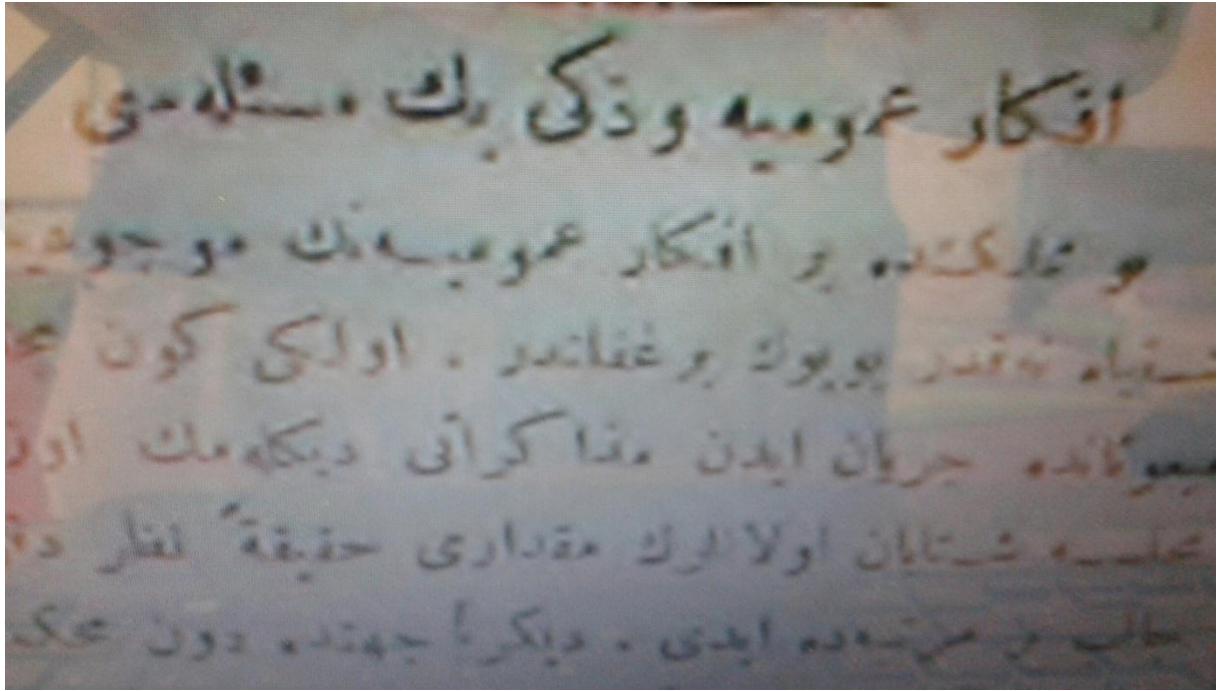 افكار عموميه وذكى بك مسئله‌سى
بو مملكتده بر افكار عموميه‌نك موجوديـ
شتباه نه‌قدر بويوك بر غفلتدر . اولكى كون
مبعوثانده جريان ايدن مذاكراتى ديكله‌مك اوز
مجلسه شتابان اولانلرك مقدارى حقيقةً انظار دقـ
جالب بر مرتبه‌ده ايدى . ديكر جهتده دون محكـ